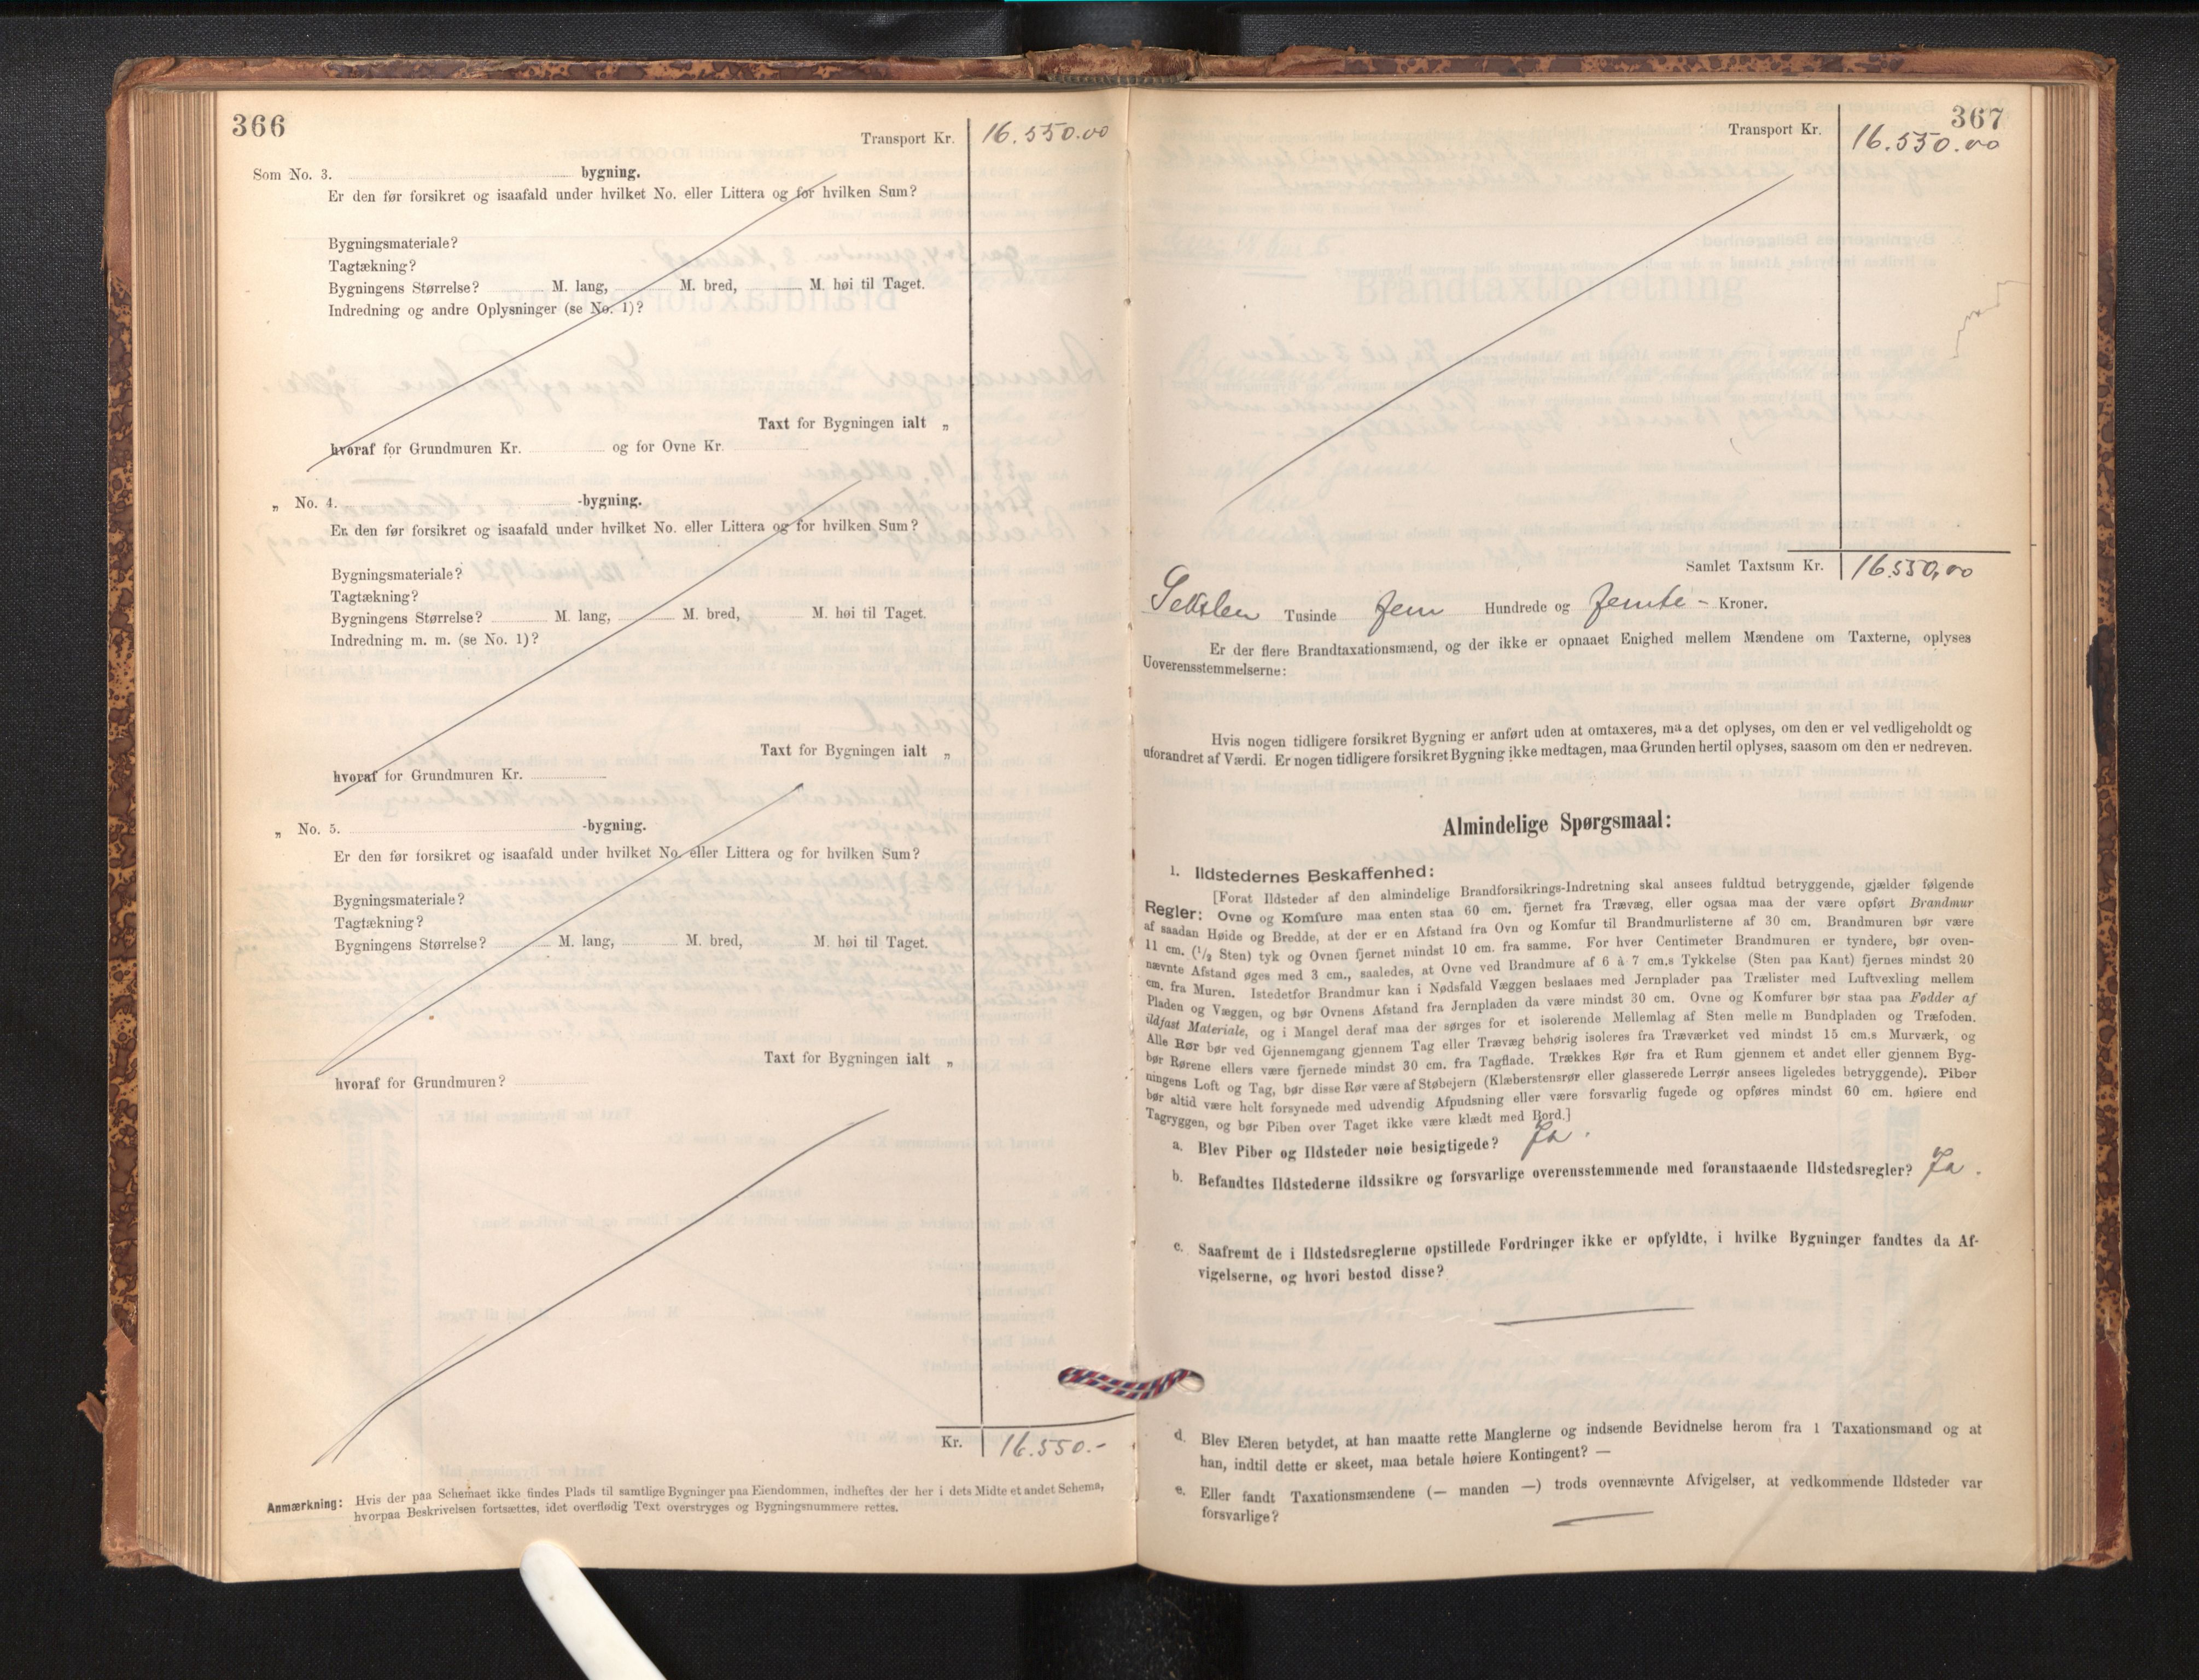 366
Transport Kr. 16.550.00
Som No. 3. bygning.
Er den før forsikret og isaafald under hvilket No. eller Littera og for hvilken Sum?
Bygningsmateriale?
Tagtækning?
Bygningens Størrelse? M. lang, M. bred, M. høi til Taget.
Indredning og andre Oplysninger (se No. 1)?
Taxt for Bygningen ialt „
hvoraf for Grundmuren Kr. og for Ovne Kr.
„ No. 4. -bygning.
Er den før forsikret og isaafald under hvilket No. eller Littera og for hvilken Sum?
Bygningsmateriale?
Tagtækning?
Bygningens Størrelse? M. lang, M. bred, M. høi til Taget.
Indredning m. m. (se No. 1)?
Taxt for Bygningen ialt „
hvoraf for Grundmuren Kr.
„ No. 5. -bygning.
Er den før forsikret og isaafald under hvilket No. eller Littera og for hvilken Sum?
Bygningsmateriale?
Tagtækning?
Bygningens Størrelse? M. lang, M. bred, M. høi til Taget.
Taxt for Bygningen ialt „
hvoraf for Grundmuren?
Kr. 16.550.-
Anmærkning: Hvis der paa Schemaet ikke findes Plads til samtlige Bygninger paa Eiendommen, indheftes der her i dets Midte et andet Schema,
hvorpaa Beskrivelsen fortsættes, idet overflødig Text overstryges og Bygningsnummere rettes.
367
Transport Kr. 16.550.00
Samlet Taxtsum Kr. 16.550,00
Seksten Tusinde fem Hundrede og femti - Kroner.
Er der flere Brandtaxationsmænd, og der ikke er opnaaet Enighed mellem Mændene om Taxterne, oplyses
Uoverensstemmelserne:
Hvis nogen tidligere forsikret Bygning er anført uden at omtaxeres, maa det oplyses, om den er vel vedligeholdt og
uforandret af Værdi. Er nogen tidligere forsikret Bygning ikke medtagen, maa Grunden hertil oplyses, saasom om den er nedreven.
Almindelige Spørgsmaal:
1. Ildstedernes Beskaffenhed:
[Forat Ildsteder af den almindelige Brandforsikrings-Indretning skal ansees fuldtud betryggende, gjælder følgende
Regler: Ovne og Komfure maa enten staa 60 cm. fjernet fra Trævæg, eller ogsaa maa der være opført Brandmur
af saadan Høide og Bredde, at der er en Afstand fra Ovn og Komfur til Brandmurlisterne af 30 cm. Brandmuren bør være
11 cm. (1/2 Sten) tyk og Ovnen fjernet mindst 10 cm. fra samme. For hver Centimeter Brandmuren er tyndere, bør oven-
nævnte Afstand øges med 3 cm., saaledes, at Ovne ved Brandmure af 6 à 7 cm.s Tykkelse (Sten paa Kant) fjernes mindst 20
cm. fra Muren. Istedetfor Brandmur kan i Nødsfald Væggen beslaaes med Jernplader paa Trælister med Luftvexling mellem
Pladen og Væggen, og bør Ovnens Afstand fra Jernpladen da være mindst 30 cm. Ovne og Komfurer bør staa paa Fødder af
ildfast Materiale, og i Mangel deraf maa der sørges for et isolerende Mellemlag af Sten mellem Bundpladen og Træfoden.
Alle Rør bør ved Gjennemgang gjennem Tag eller Trævæg behørig isoleres fra Træværket ved mindst 15 cm.s Murværk, og
bør Rørene ellers være fjernede mindst 30 cm. fra Tagflade. Trækkes Rør fra et Rum gjennem et andet eller gjennem Byg-
ningens Loft og Tag, bør disse Rør være af Støbejern (Klæberstensrør eller glasserede Lerrør ansees ligeledes betryggende). Piber
bør altid være helt forsynede med udvendig Afpudsning eller være forsvarlig fugede og opføres mindst 60 cm. høiere end
Tagryggen, og bør Piben over Taget ikke være klædt med Bord.]
a. Blev Piber og Ildsteder nøie besigtigede? Ja.
b. Befandtes Ildstederne ildssikre og forsvarlige overensstemmende med foranstaaende Ildstedsregler? Ja.
c. Saafremt de i Ildstedsreglerne opstillede Fordringer ikke er opfyldte, i hvilke Bygninger fandtes da Af-
vigelserne, og hvori bestod disse?
d. Blev Eieren betydet, at han maatte rette Manglerne og indsende Bevidnelse herom fra 1 Taxationsmand og at
han, indtil dette er skeet, maa betale høiere Kontingent? —
e. Eller fandt Taxationsmændene (— manden —) trods ovennævnte Afvigelser, at vedkommende Ildsteder var
forsvarlige?